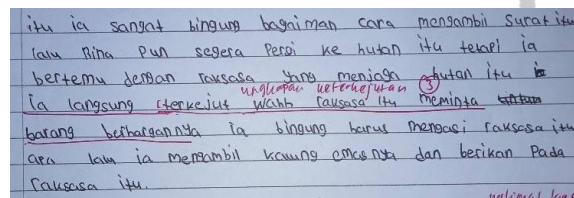 itu ia sangat bingung bagaiman cara mengambil surat itu
lalu Rina pun segera Pergi ke hutan itu tetapi ia
bertemu dengan raksasa yang menjaga hutan itu
ungkapan keterkejutan 3
ia langsung terkejut wahh raksasa itu meminta
barang berhargannya ia bingung harus mengasi raksasa itu
apa lalu ia mengambil kalung emasnya dan berikan Pada
raksasa itu.